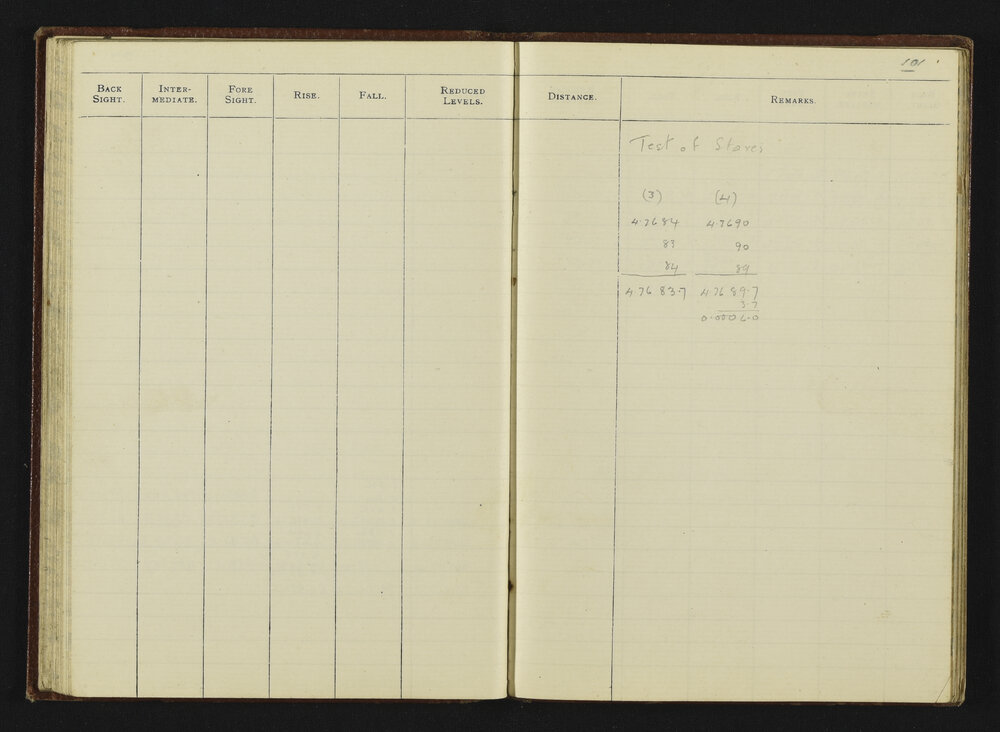 101
BACK SIGHT. INTER-MEDIATE. FORE SIGHT. RISE. FALL. REDUCED LEVELS. DISTANCE. REMARKS.
Test of Staves
(3) (4)
4.7684 4.7690
83 90
84 89
4.7683.7 4.7689.7
3.7
0.0006.0